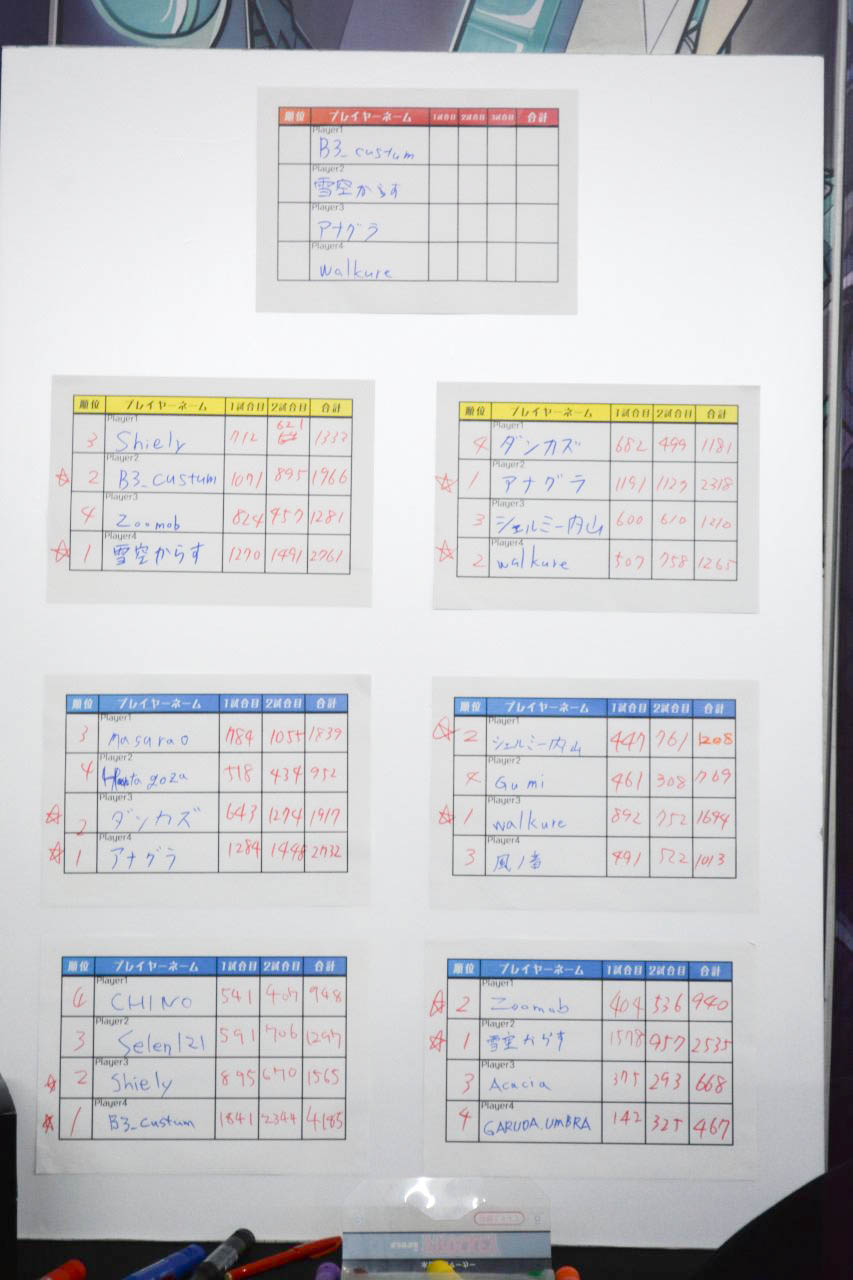 順位 プレイヤーネーム 1試合目 2試合目 3試合目 合計
Player1
B3_custum
Player2
雪空からす
Player3
アナグラ
Player4
walkure
順位 プレイヤーネーム 1試合目 2試合目 合計
Player1
3 Shiely 712 621 1333
Player2
2 B3_custum 1071 895 1966
Player3
4 Zoomob 824 457 1281
Player4
1 雪空からす 1270 1491 2761
順位 プレイヤーネーム 1試合目 2試合目 合計
Player1
4 ダンカズ 682 499 1181
Player2
1 アナグラ 1191 1127 2318
Player3
3 シェルミー内山 600 610 1210
Player4
2 walkure 507 758 1265
順位 プレイヤーネーム 1試合目 2試合目 合計
Player1
3 Masurao 784 1055 1839
Player2
4 goza 518 434 952
Player3
2 ダンカズ 643 1274 1917
Player4
1 アナグラ 1284 1448 2732
順位 プレイヤーネーム 1試合目 2試合目 合計
Player1
2 シェルミー内山 447 761 1208
Player2
4 Gumi 461 308 769
Player3
1 walkure 892 752 1644
Player4
3 風ノ音 491 522 1013
順位 プレイヤーネーム 1試合目 2試合目 合計
Player1
4 CHINO 541 407 948
Player2
3 Selen121 591 706 1297
Player3
2 Shiely 895 670 1565
Player4
1 B3_custum 1841 2344 4185
順位 プレイヤーネーム 1試合目 2試合目 合計
Player1
2 Zoomob 404 536 940
Player2
1 雪空からす 1578 957 2535
Player3
3 Acacia 375 293 668
Player4
4 GARUDA.UMBRA 142 325 467